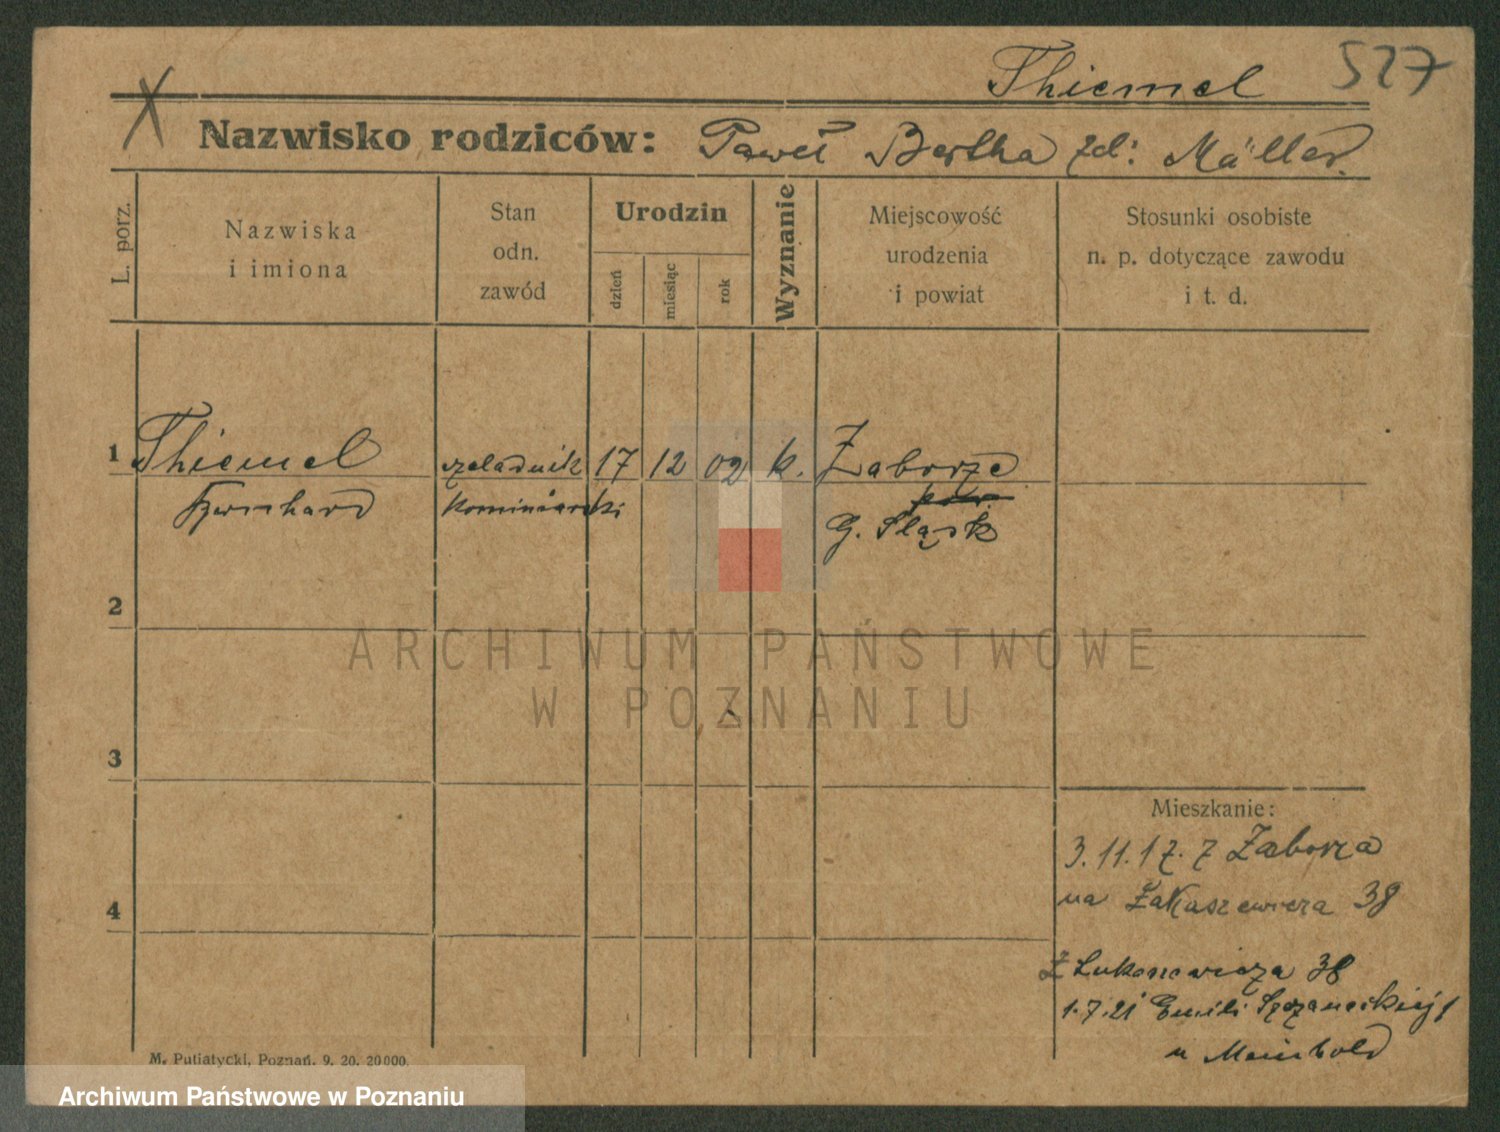 Thiemel 527
X
Nazwisko rodziców: Paweł Bertha zd: Müller.
L. porz.
Nazwiska
i imiona
Stan
odn.
zawód
Urodzin
dzień
miesiąc
rok
Wyznanie
Miejscowość
urodzenia
i powiat
Stosunki osobiste
n. p. dotyczące zawodu
i t. d.
1 Thiemel czeladnik 17 12 02 k. Zaborze
Bernhard kominiarski
G. Śląsk
2
3
4
Mieszkanie:
3.11.17. z Zaborza
na 38
Z 38
1.7.21 Emili Sczanieckiej 1
u Meinhold
M. Putiatycki, Poznań. 9. 20. 20000.
ARCHIWUM PAŃSTWOWE
W POZNANIU
Archiwum Państwowe w Poznaniu